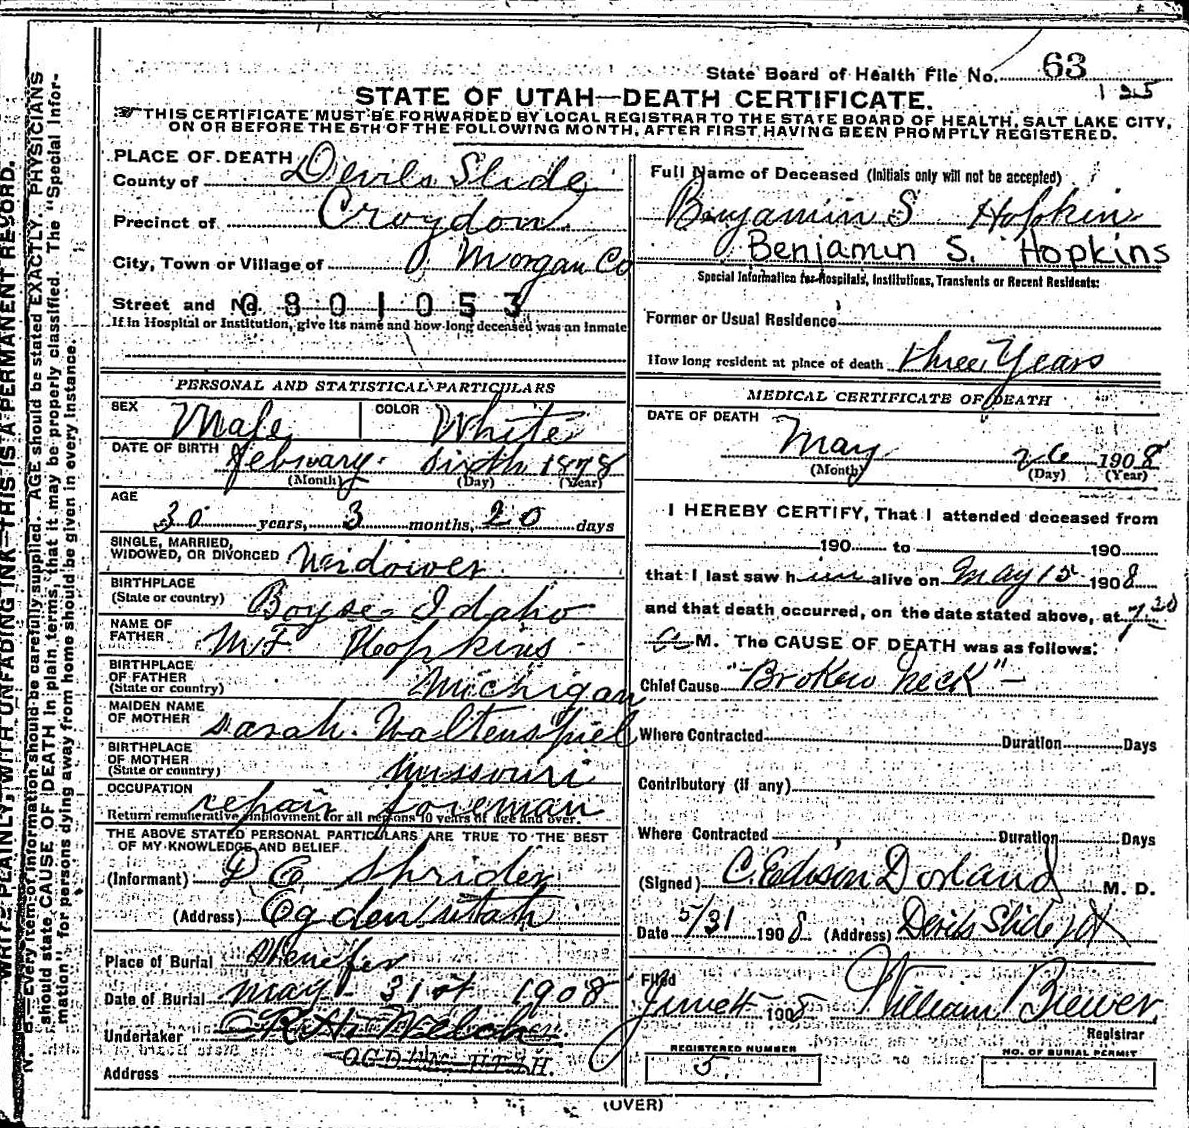 State Board of Health File No. 63
125
STATE OF UTAH—DEATH CERTIFICATE.
THIS CERTIFICATE MUST BE FORWARDED BY LOCAL REGISTRAR TO THE STATE BOARD OF HEALTH, SALT LAKE CITY,
ON OR BEFORE THE 5TH OF THE FOLLOWING MONTH, AFTER FIRST HAVING BEEN PROMPTLY REGISTERED.
WRITE PLAINLY, WITH UNFADING INK—THIS IS A PERMANENT RECORD.
N. B.—Every item of information should be carefully supplied. AGE should be stated EXACTLY. PHYSICIANS
should state CAUSE OF DEATH in plain terms, that it may be properly classified. The "Special Infor-
mation" for persons dying away from home should be given in every instance.
PLACE OF DEATH
County of Devils Slide
Precinct of Croydon
City, Town or Village of Morgan Co
Street and No. 0801053
If in Hospital or Institution, give its name and how long deceased was an inmate
PERSONAL AND STATISTICAL PARTICULARS
SEX Male COLOR White
DATE OF BIRTH February sixth 1878
(Month) (Day) (Year)
AGE
30 years, 3 months, 20 days
SINGLE, MARRIED,
WIDOWED, OR DIVORCED Widower
BIRTHPLACE
(State or country) Boyse Idaho
NAME OF
FATHER M F Hopkins
BIRTHPLACE
OF FATHER
(State or country) Michigan
MAIDEN NAME
OF MOTHER Sarah Waltenspiel
BIRTHPLACE
OF MOTHER
(State or country) Missouri
OCCUPATION repair foreman
Return remunerative employment for all persons 10 years of age and over.
THE ABOVE STATED PERSONAL PARTICULARS ARE TRUE TO THE BEST
OF MY KNOWLEDGE AND BELIEF
(Informant) Shrider
(Address) Ogden Utah
Place of Burial Henifer
Date of Burial May 31st 1908
Undertaker Welch
Address OGDEN UTAH.
Full Name of Deceased (Initials only will not be accepted)
Benjamin S Hopkin
Benjamin S. Hopkins
Special Information for Hospitals, Institutions, Transients or Recent Residents:
Former or Usual Residence
How long resident at place of death three Years
MEDICAL CERTIFICATE OF DEATH
DATE OF DEATH
May 26 1908
(Month) (Day) (Year)
I HEREBY CERTIFY, That I attended deceased from
190 to 190
that I last saw him alive on May 15 1908
and that death occurred, on the date stated above, at 7 30
a M. The CAUSE OF DEATH was as follows:
Chief Cause "Broken neck"
Where Contracted Duration Days
Contributory (if any)
Where Contracted Duration Days
(Signed) C. Edison Dorland M. D.
Date 5/31 1908 (Address) Devils Slide Ut
Filed
1908 William Brewer
Registrar
REGISTERED NUMBER
5
NO. OF BURIAL PERMIT
(OVER)